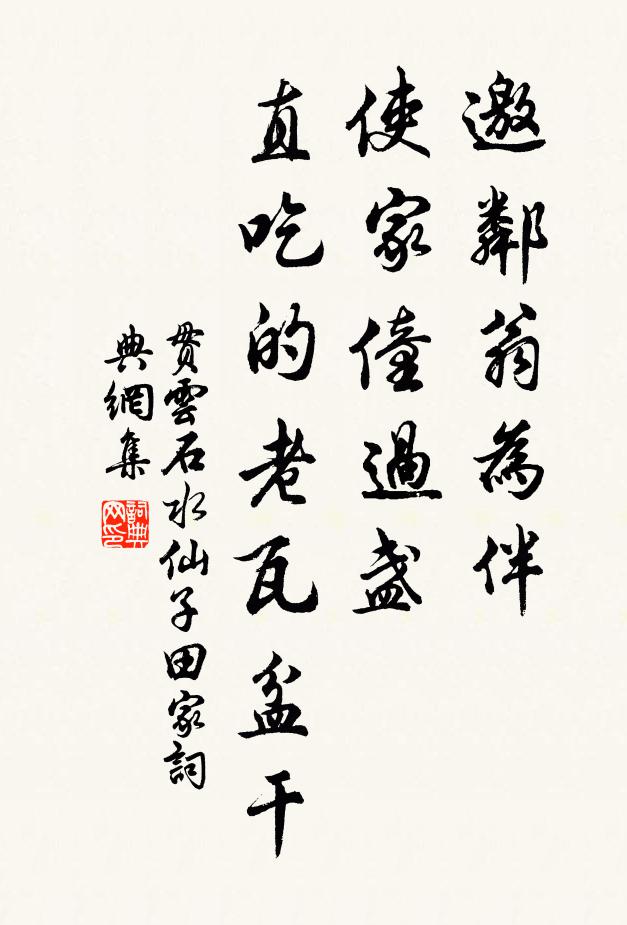 邀鄰翁為伴
使家僮過盞
直吃的老瓦盆干
貫雲石水仙子田家詞
典網集
詞典网印